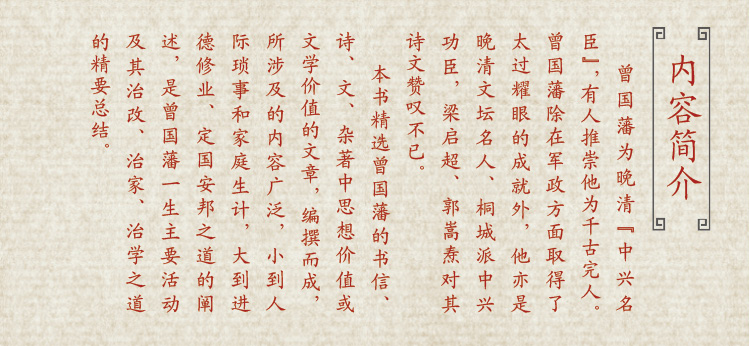 内容简介
曾国藩为晚清『中兴名
臣』，有人推崇他为千古完人。
曾国藩除在军政方面取得了
太过耀眼的成就外，他亦是
晚清文坛名人、桐城派中兴
功臣，梁启超、郭嵩焘对其
诗文赞叹不已。
本书精选曾国藩的书信、
诗、文、杂著中思想价值或
文学价值的文章，编撰而成，
所涉及的内容广泛，小到人
际琐事和家庭生计，大到进
德修业、定国安邦之道的阐
述，是曾国藩一生主要活动
及其治政、治家、治学之道
的精要总结。